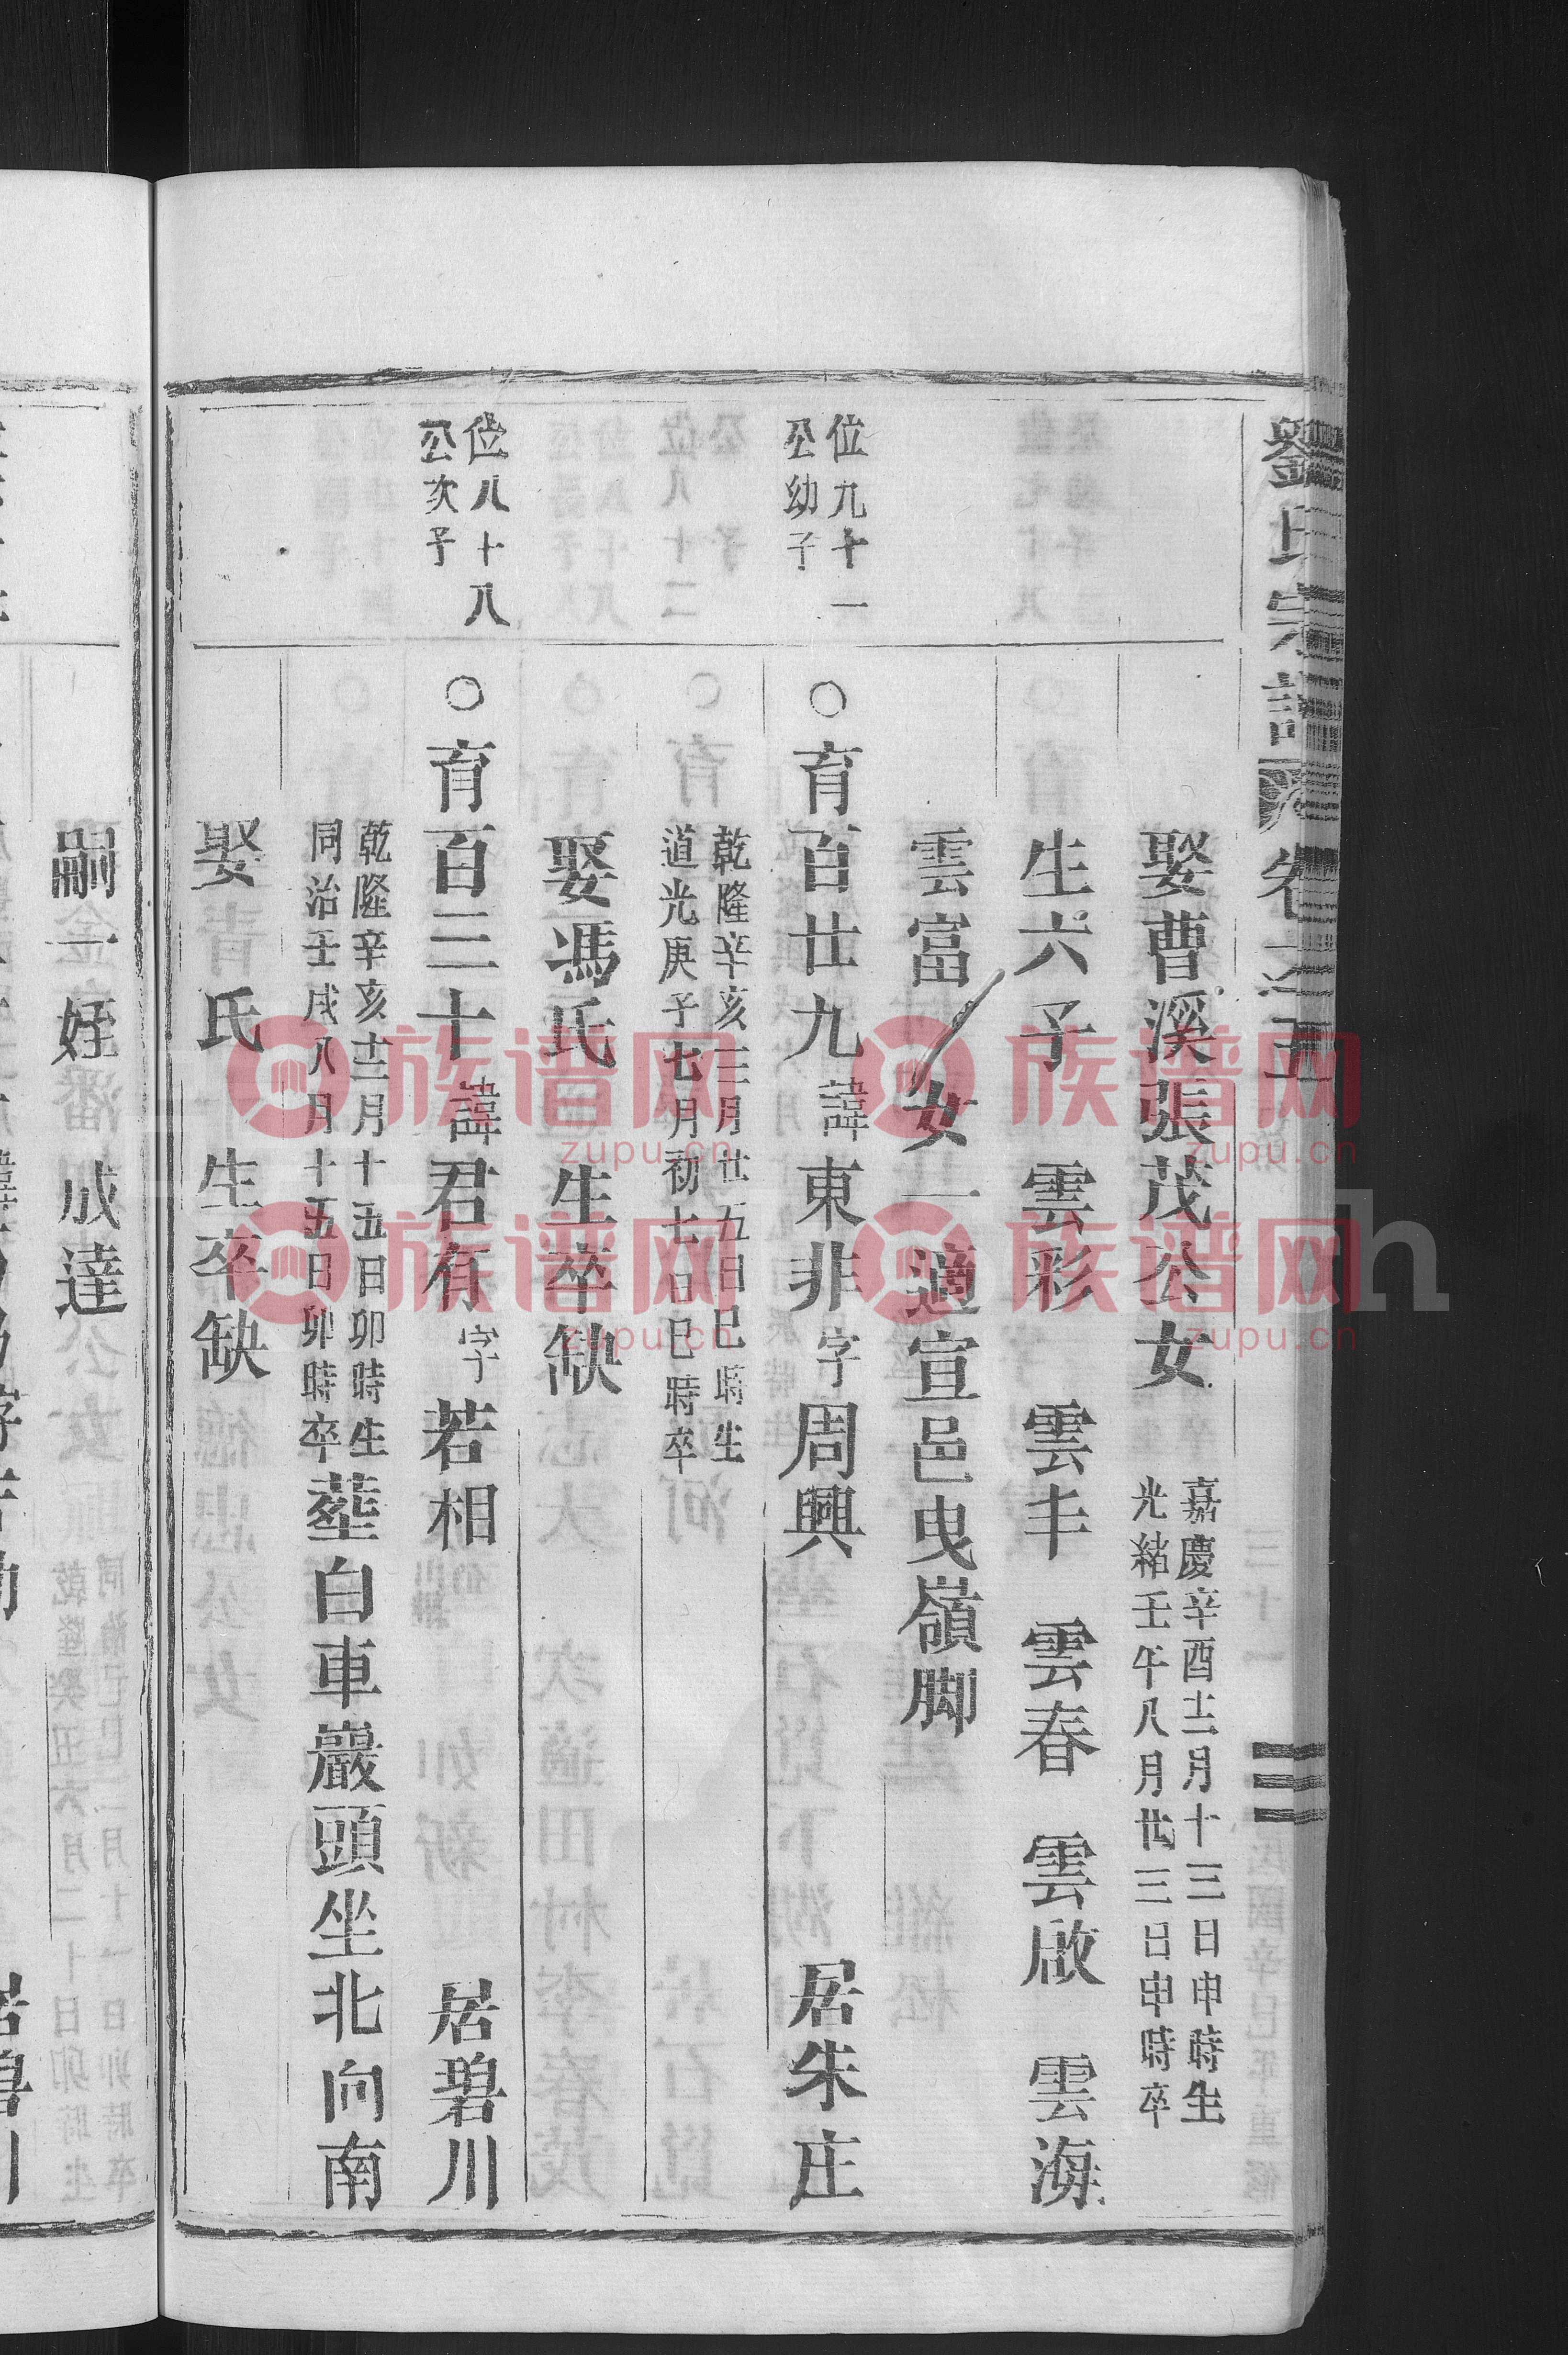 劉氏宗譜 卷之五
娶曹溪張茂公女 嘉慶辛酉十二月十三日申時生
光緒壬午八月廿三日申時卒
生六子 雲彩 雲丰 雲春 雲啟 雲海
雲富 女一適宣邑曳嶺脚
位九十一
公幼子
○育百廿九諱東非字周興 居朱庄
乾隆辛亥三月廿五日巳時生
道光庚子七月初七日巳時卒
娶馮氏 生卒缺
位八十八
公次子
○育百三十諱君有字若相 居碧川
乾隆辛亥十二月十五日卯時生
同治壬戌八月十五日卯時卒
塟白車巖頭坐北向南
娶 氏 生卒缺
嗣一姪 成達
族谱网
zupu.cn
族谱网
zupu.cn
族谱网
zupu.cn
族谱网
zupu.cn